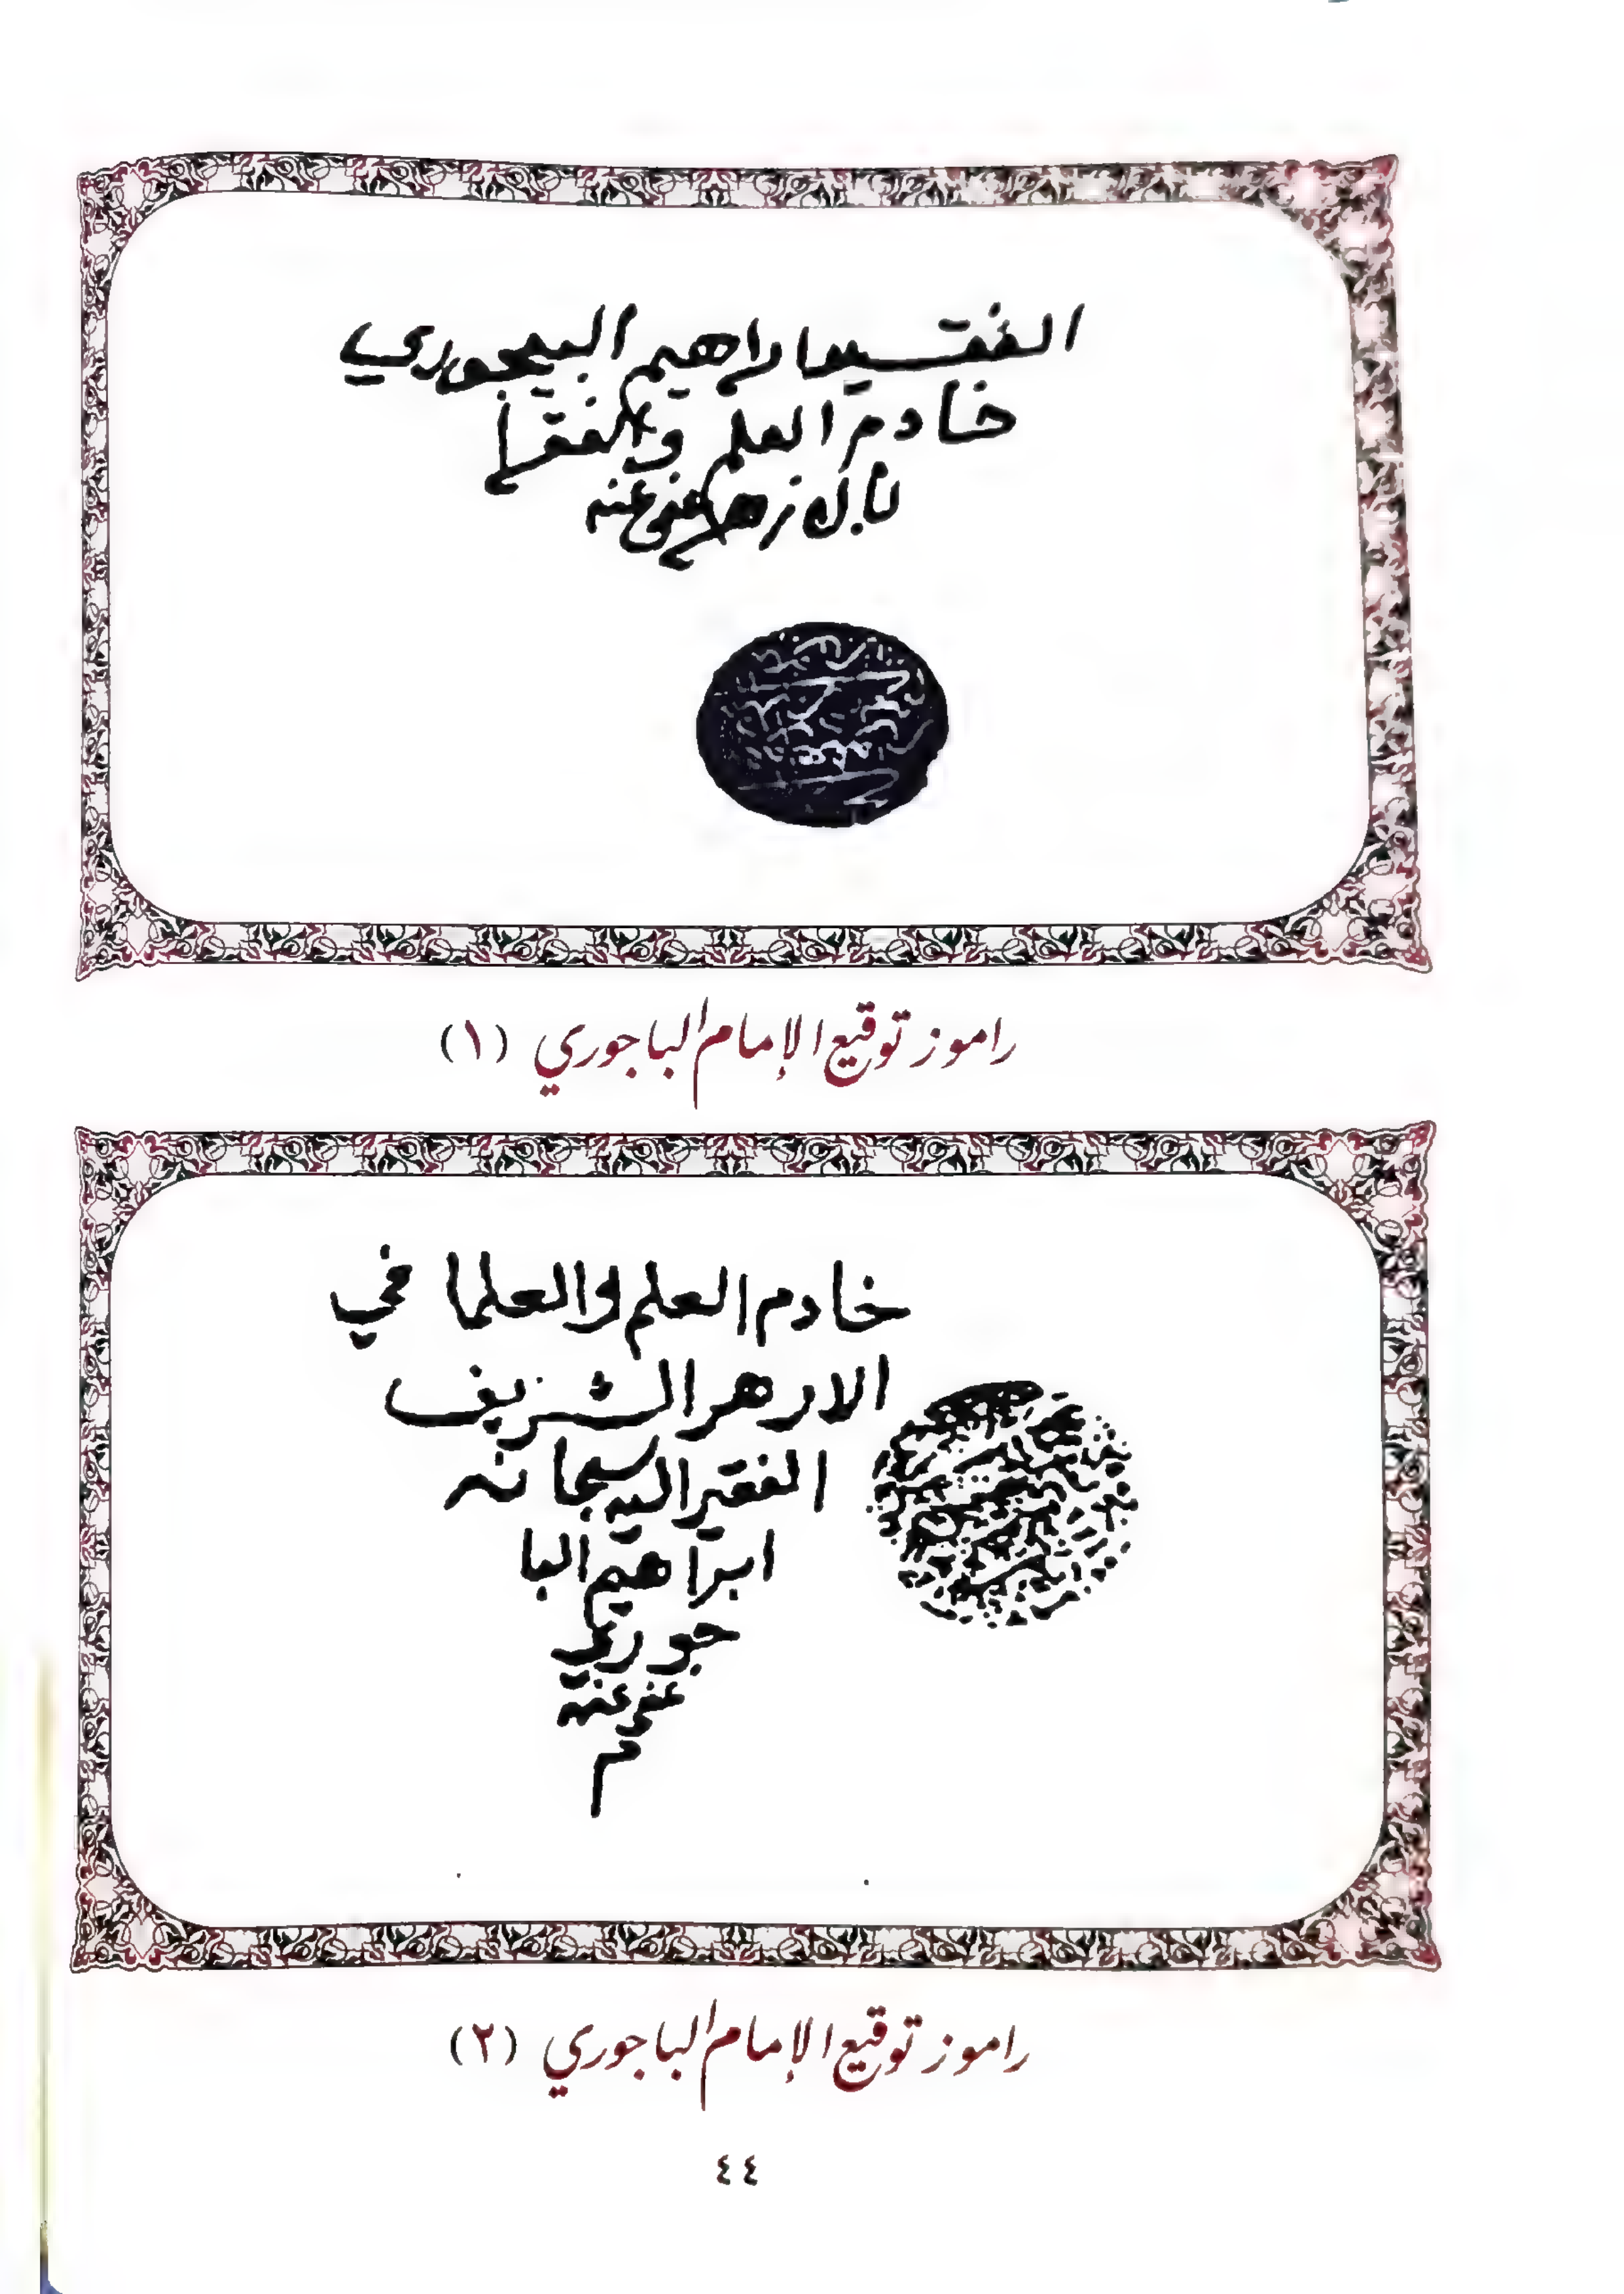 الفقير ابراهيم البيجوري
خادم العلم والفقرا
بالازهر عفي عنه
راموز توقيع الإمام الباجوري (١)
خادم العلم والعلما في
الازهر الشريف
الفقير اليه سبحانه
ابراهيم البا
جوري
عفي عنه
م
راموز توقيع الإمام الباجوري (٢)
٤٤